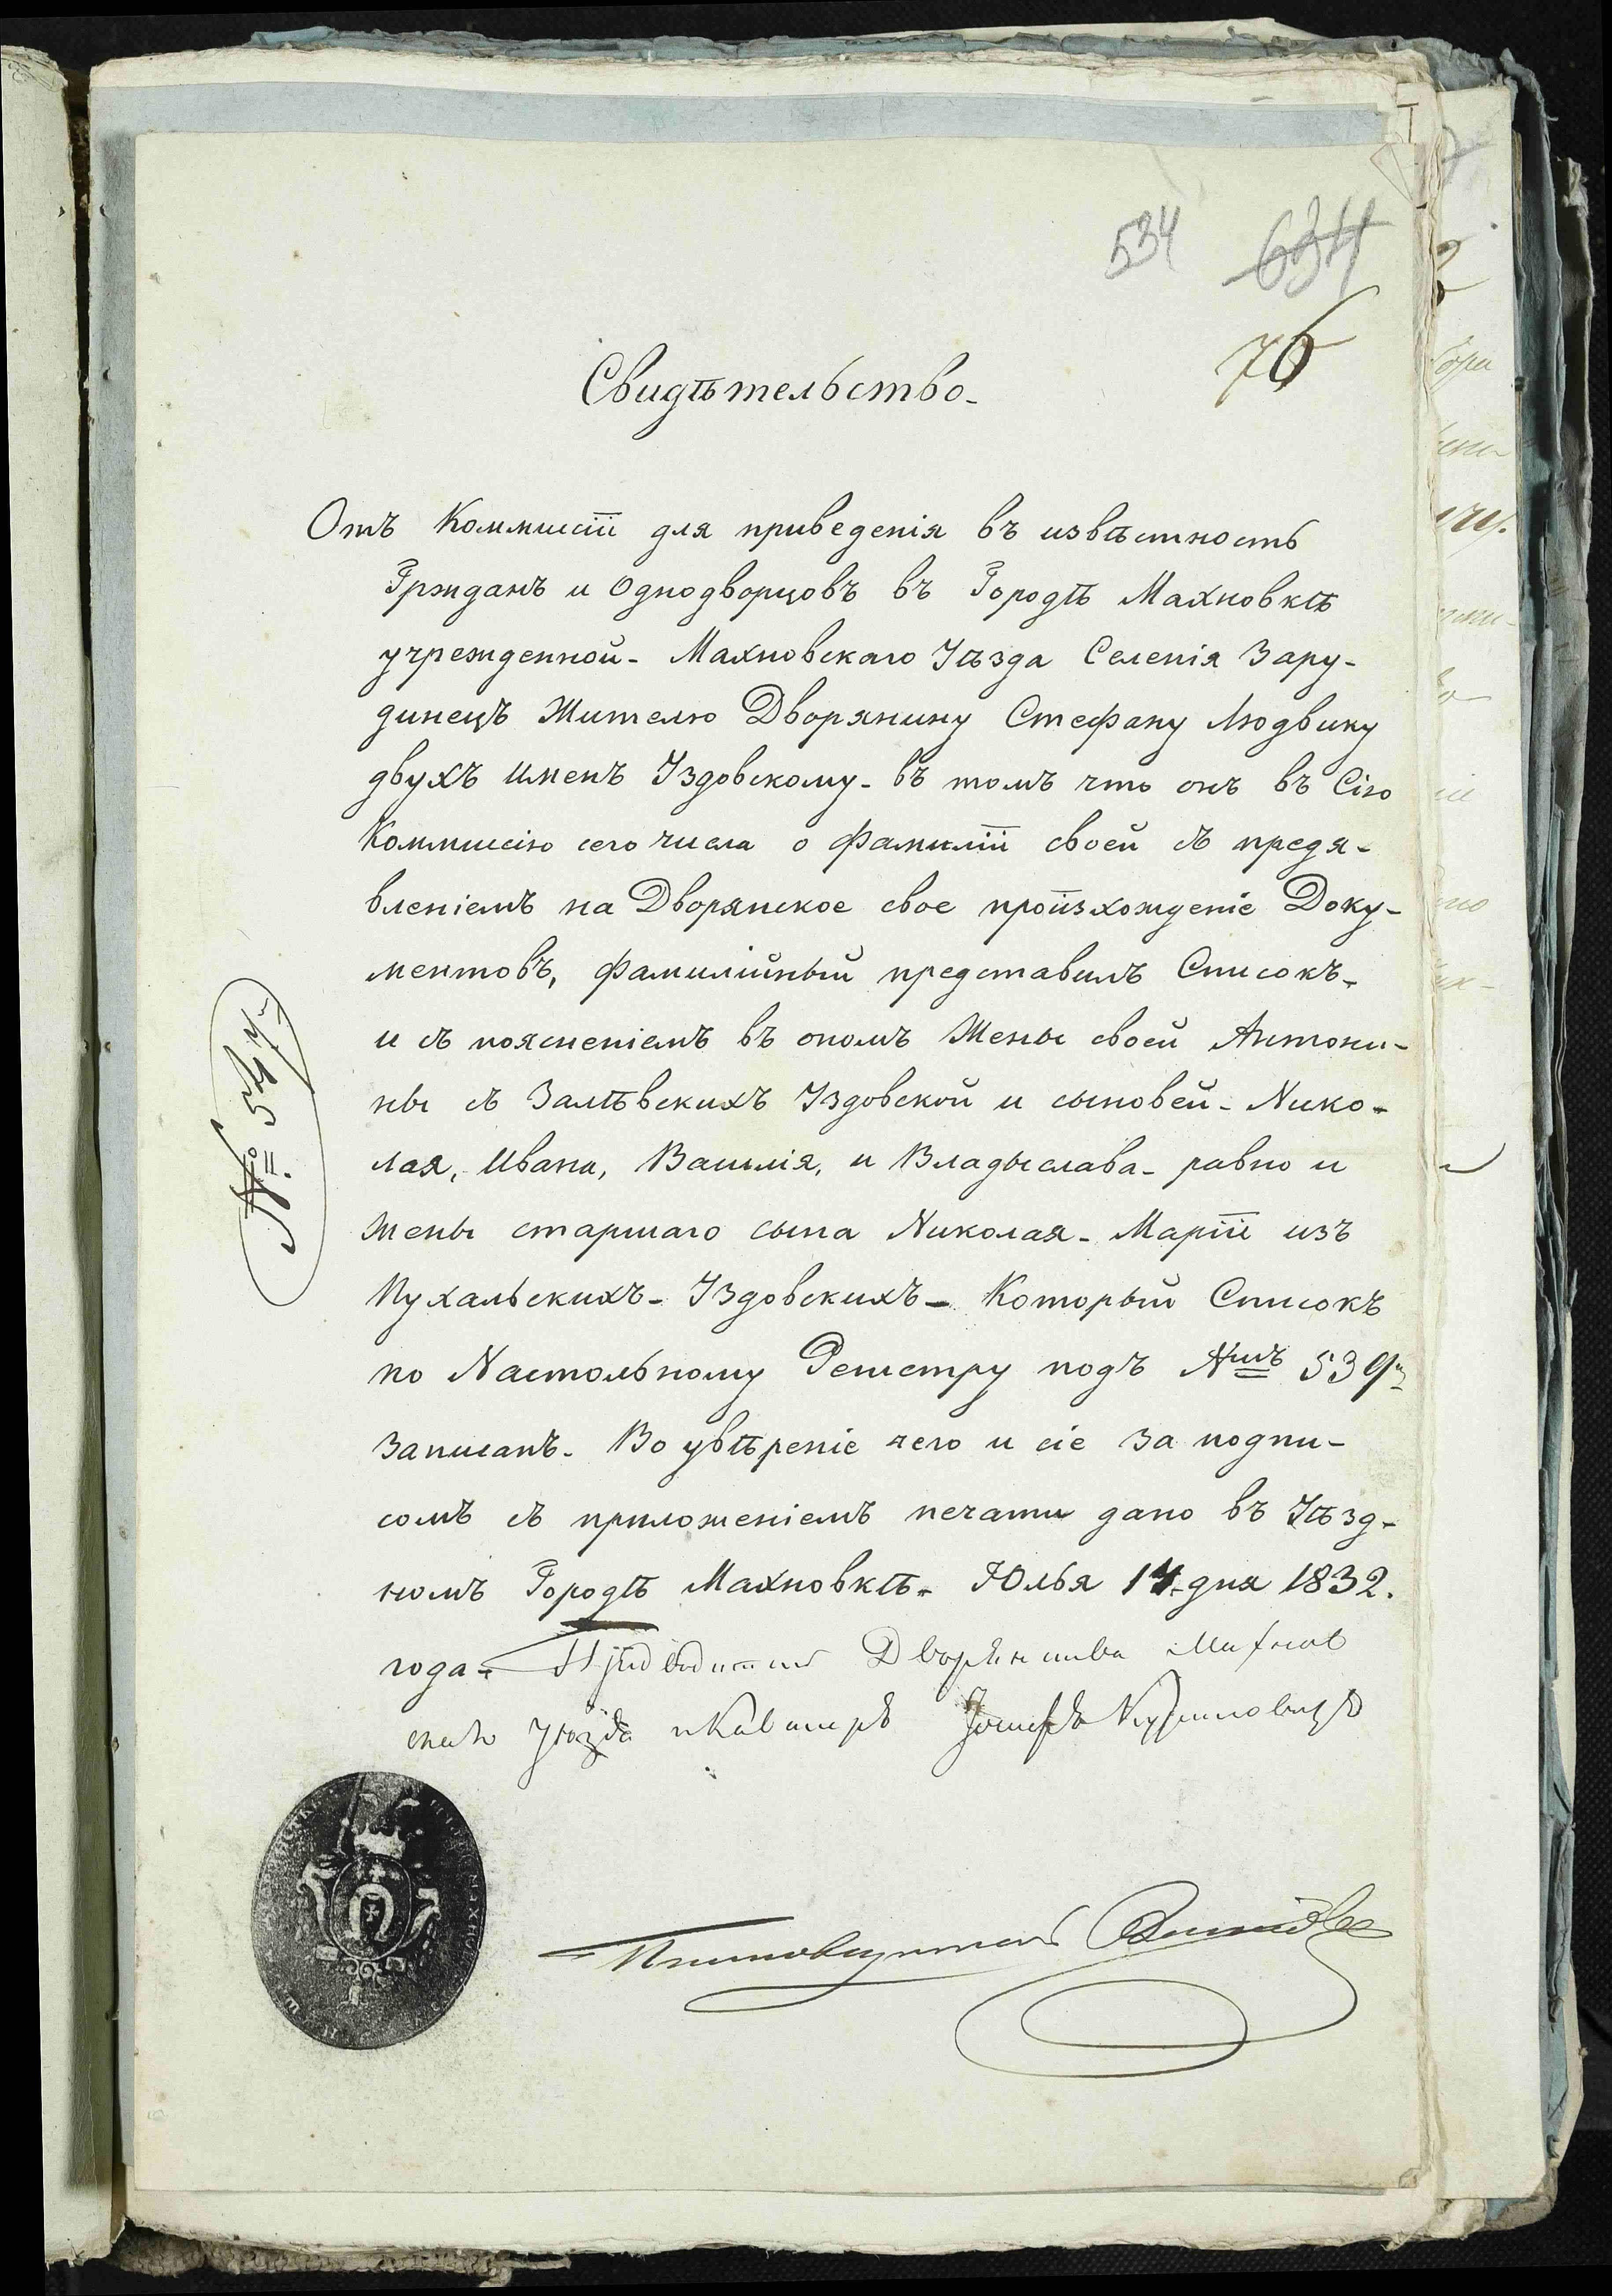 534 634
76
Свидѣтельство-
Отъ Коммисіи для приведенія въ извѣстность
Гржданъ и Однодворцовъ въ Городѣ Махновкѣ
учрежденной- Махновскаго Уѣзда Селенія Зару-
динецъ Жителю Дворянину Стефану Людвику
двухъ Именъ Уздовскому- въ томъ что онъ въ Сію
Коммисію сего числа о Фамиліи своей съ предя-
вленіемъ на Дворянское свое произхожденіе Доку-
ментовъ, Фамилійный представилъ Списокъ-
и съ поясненіемъ въ ономъ Жены своей Антони-
ны съ Залѣвскихъ Уздовской и сыновей- Нико-
лая, Ивана, Василія, и Владыслава- равно и
Жены старшаго сына Николая- Маріи изъ
Пухальскихъ- Уздовскихъ- Который Списокъ
по Настольному Регистру подъ №мъ 539м
Записанъ- Во увѣреніе чего и сіе За подпи-
сомъ съ приложеніемъ печати дано въ Уѣзд-
номъ Городѣ Махновкѣ- Юлья 14 дня 1832.
года- Предводитель Дворянства Махнов
скаго Уѣзда и Кавалеръ Іосифъ
№ 547